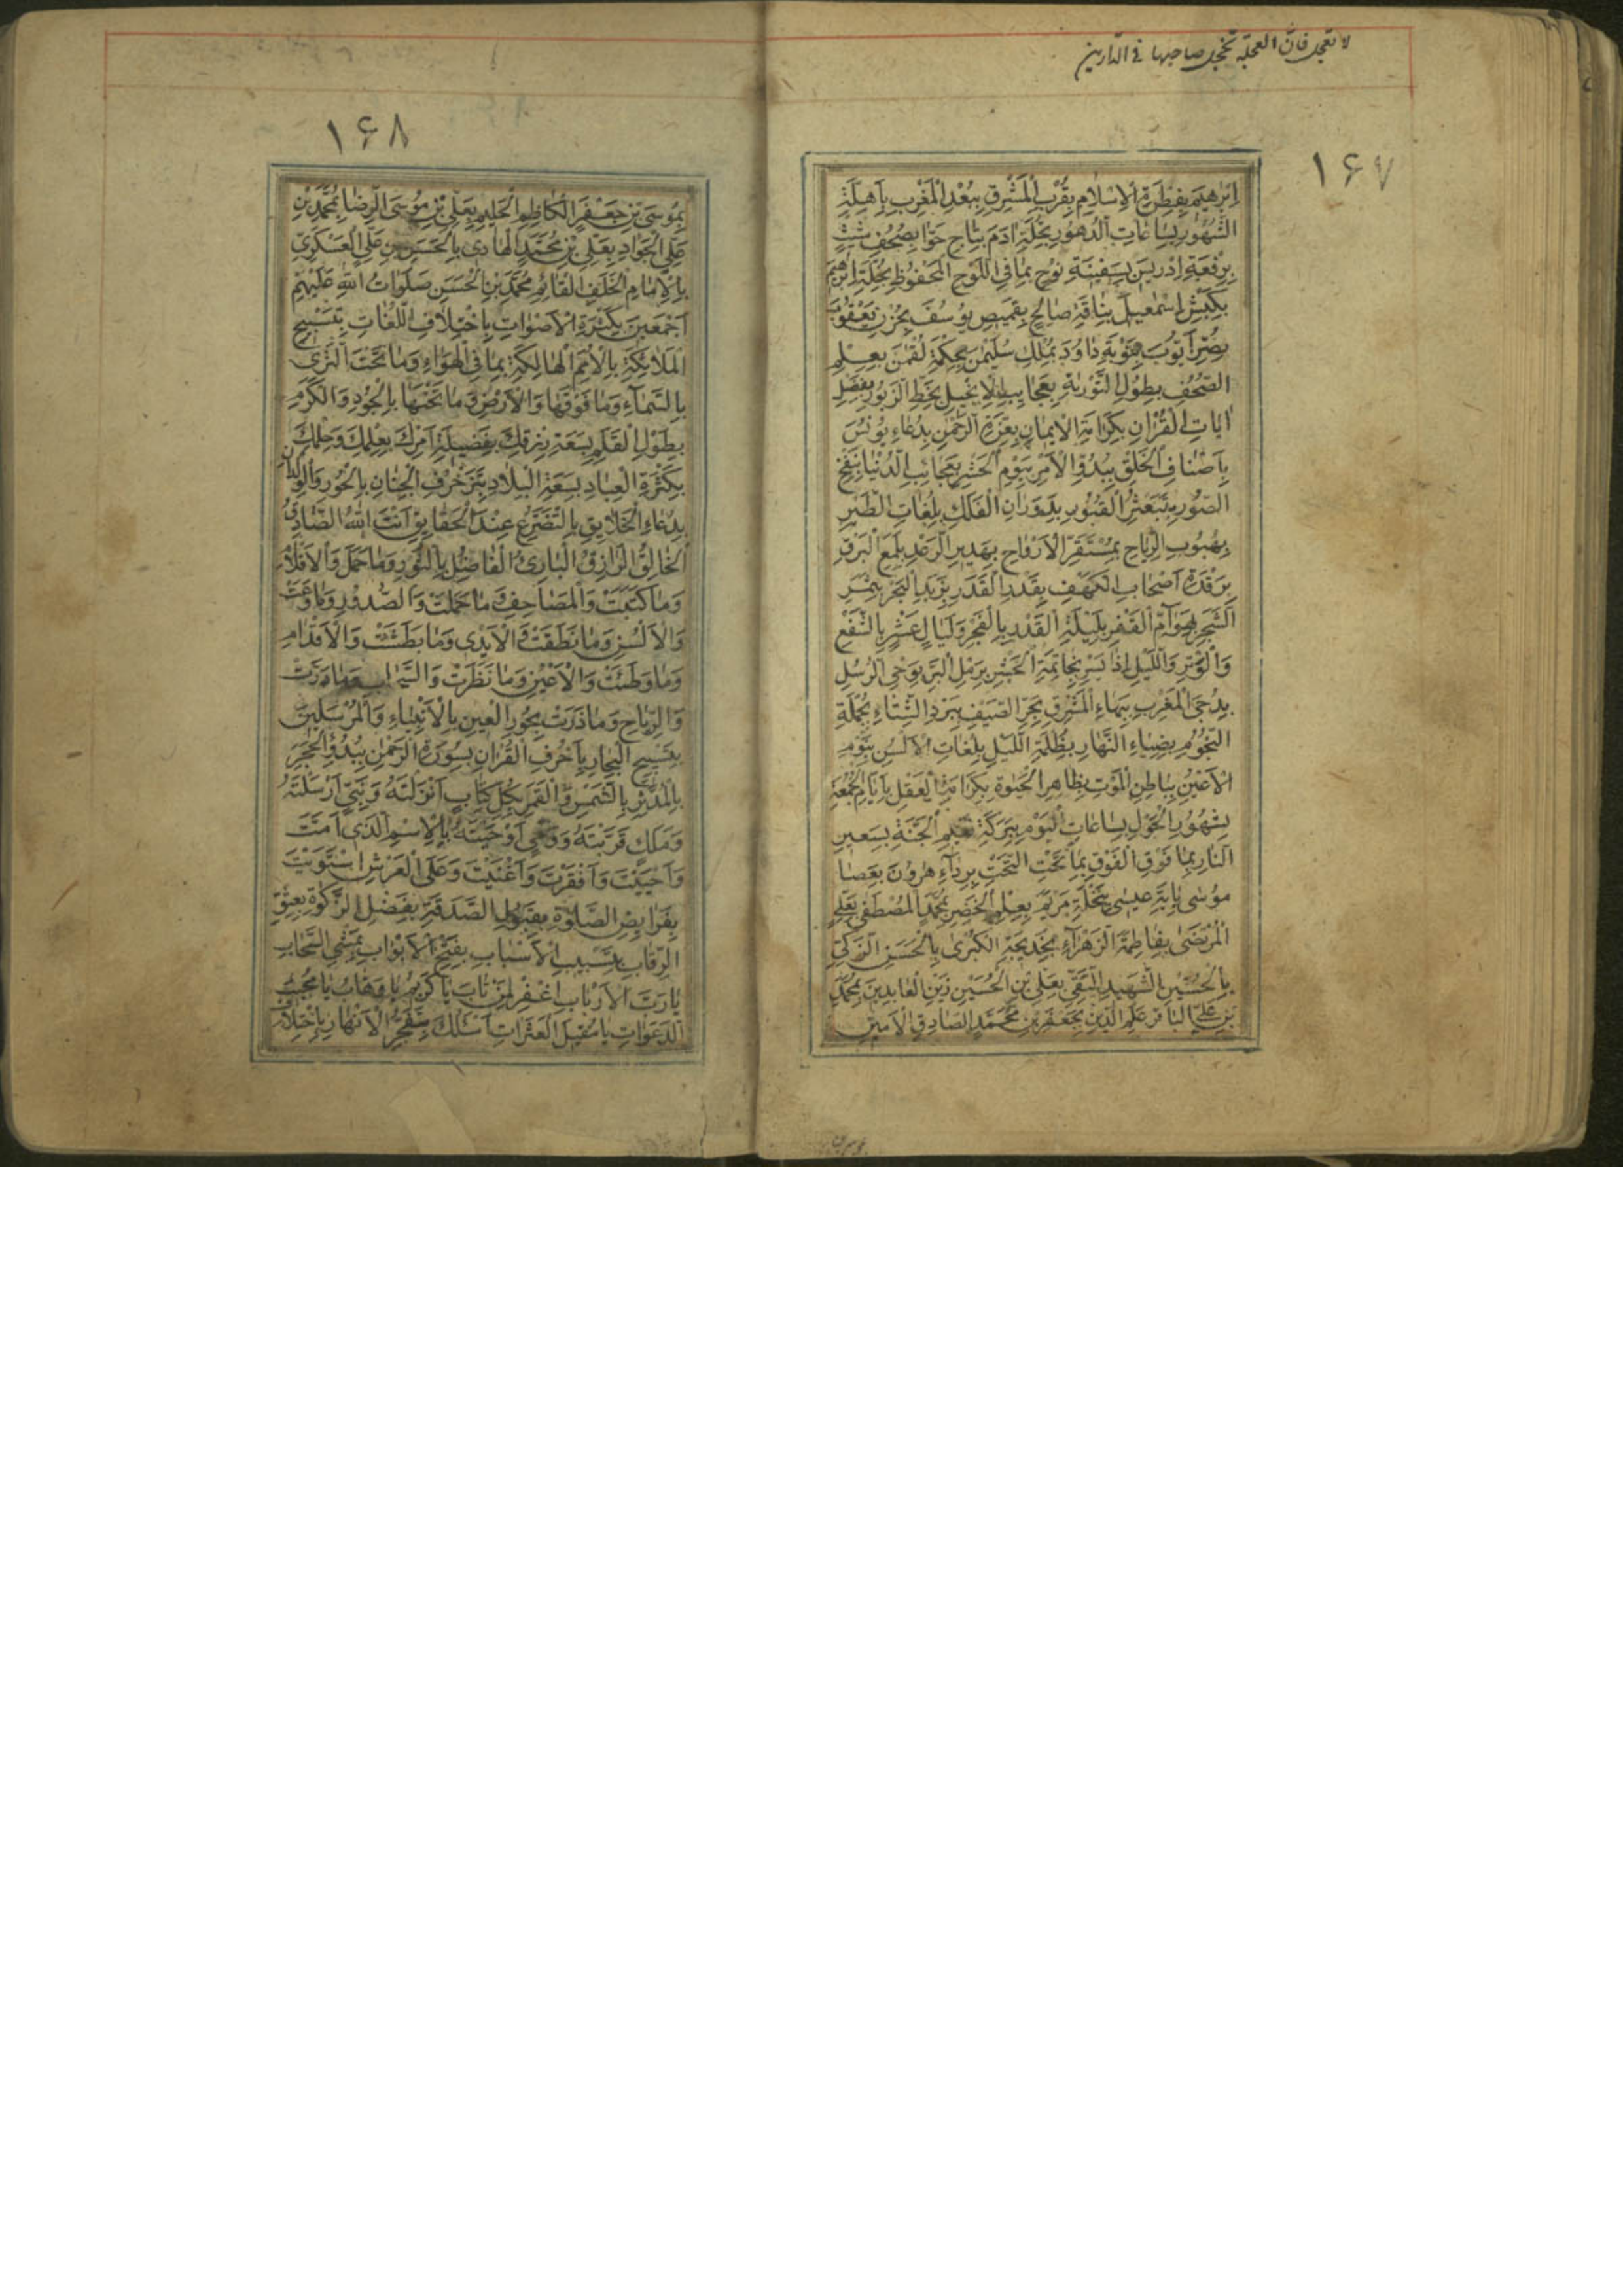 لا تعجل فان العجلة تخجل صاحبها فى الدارين
۱۶۷
اِبْرٰهيمَ بِفِطْرَةِ الْاِسْلٰامِ بِقُرْبِ الْمَشْرِقِ بِبُعْدِ الْمَغْرِبِ بِاَهِلَّةِ
الشُّهُورِ بِسٰاعٰاتِ الدُّهُورِ بِحُلَّةِ اٰدَمَ بِتٰاجِ حَوّٰا بِصُحُفِ شَيْثٍ
بِرِفْعَةِ اِدْريسَ بِسَفينَةِ نُوحٍ بِمٰا فِى اللَّوْحِ الْمَحْفُوظِ بِخُلَّةِ اِبْرٰهيمَ
بِكَبْشِ اِسْمٰعيلَ بِنٰاقَةِ صٰالِحٍ بِقَميصِ يُوسُفَ بِحُزْنِ يَعْقُوبَ
بِضُرِّ اَيُّوبَ بِتَوْبَةِ دٰاوُدَ بِمُلْكِ سُلَيْمٰنَ بِحِكْمَةِ لُقْمٰنَ بِعِلْمِ
الصُّحُفِ بِطُولِ التَّوْرٰيةِ بِعَجٰايِبِ الْاِنْجيلِ بِخَطِّ الزَّبُورِ بِفَضْلِ
اٰيٰاتِ الْقُرْاٰنِ بِكَرٰامَةِ الْايمٰانِ بِعِزَّةِ الرَّحْمٰنِ بِدُعٰاءِ يُونُسَ
بِاَصْنٰافِ الْخَلْقِ بِبُدُوِّ الْاَمْرِ بِيَوْمِ الْحَشْرِ بِعَجٰائِبِ الدُّنْيٰا بِنَفْخِ
الصُّورِ بِتَبَعْثُرِ الْقُبُورِ بِدَوَرٰانِ الْفَلَكِ بِلُغٰاتِ الطَّيْرِ
بِهُبُوبِ الرِّيٰاحِ بِمُسْتَقَرِّ الْاَرْوٰاحِ بِهَديرِ الرَّعْدِ بِلَمْعِ الْبَرْقِ
بِرَقْدَةِ اَصْحٰابِ الْكَهْفِ بِقَدْرِ الْقَدَرِ بِزَبَدِ الْبَحْرِ بِثَمَرِ
الشَّجَرِ بِهَوٰآمِّ الْقَفْرِ بِلَيْلَةِ الْقَدْرِ بِالْفَجْرِ وَلَيٰالٍ عَشْرٍ بِالشَّفْعِ
وَالْوَتْرِ وَاللَّيْلِ اِذٰا يَسْرِ بِخٰاتِمَةِ الْحَشْرِ بِرَمْلِ الْبَرِّ بِوَحْىِ الرُّسُلِ
بِدُجَى الْمَغْرِبِ بِبَهٰاءِ الْمَشْرِقِ بِحَرِّ الصَّيْفِ بِبَرْدِ الشِّتٰاءِ بِجُمْلَةِ
النُّجُومِ بِضِيٰاءِ النَّهٰارِ بِظُلْمَةِ اللَّيْلِ بِلُغٰاتِ الْاَلْسُنِ بِنَوْمِ
الْاَعْيُنِ بِبٰاطِنِ الْمَوْتِ بِظٰاهِرِ الْحَيٰوةِ بِكَرٰامَةِ الْعَقْلِ بِاَيّٰامِ الْجُمُعَةِ
بِشُهُورِ الْحَوْلِ بِسٰاعٰاتِ الْيَوْمِ بِبَرَكَةِ نَعيمِ الْجَنَّةِ بِسَعيرِ
النّٰارِ بِمٰا فَوْقَ الْفَوْقِ بِمٰا تَحْتَ التَّحْتِ بِرِدٰآءِ هٰرُونَ بِعَصٰا
مُوسٰى بِاٰيَةِ عيسٰى بِنَخْلَةِ مَرْيَمَ بِعِلْمِ الْخَضِرِ بِمُحَمَّدٍ الْمُصْطَفٰى بِعَلِىٍّ
الْمُرْتَضٰى بِفٰاطِمَةَ الزَّهْرٰآءِ بِخَديجَةَ الْكُبْرٰى بِالْحَسَنِ الزَّكِىِّ
بِالْحُسَيْنِ الشَّهيدِ التَّقِىِّ بِعَلِىِّ بْنِ الْحُسَيْنِ زَيْنِ الْعٰابِدينَ بِمُحَمَّدِ
بْنِ عَلِىٍّ الْبٰاقِرِ عَلَمِ الدّينِ بِجَعْفَرِ بْنِ مُحَمَّدٍ الصّٰادِقِ الْاَمينِ
۱۶۸
بِمُوسَى بْنِ جَعْفَرٍ الْكٰاظِمِ الْحَليمِ بِعَلِىِّ بْنِ مُوسَى الرِّضٰا بِمُحَمَّدِ بْنِ
عَلِىٍّ الْجَوٰادِ بِعَلِىِّ بْنِ مُحَمَّدٍ الْهٰادى بِالْحَسَنِ بْنِ عَلِىٍّ الْعَسْكَرِىِّ
بِالْاِمٰامِ الْخَلَفِ الْقٰائِمِ مُحَمَّدِ بْنِ الْحَسَنِ صَلَوٰاتُ اللّٰهِ عَلَيْهِمْ
اَجْمَعينَ بِكَثْرَةِ الْاَصْوٰاتِ بِاخْتِلٰافِ اللُّغٰاتِ بِتَسْبيحِ
الْمَلٰائِكَةِ بِالْاُمَمِ الْهٰالِكَةِ بِمٰا فِى الْهَوٰاءِ وَمٰا تَحْتَ الثَّرٰى
بِالسَّمٰآءِ وَمٰا فَوْقَهٰا وَالْاَرْضِ وَمٰا تَحْتَهٰا بِالْجُودِ وَالْكَرَمِ
بِطَوْلِ الْقَلَمِ بِسَعَةِ رِزْقِكَ بِفَضيلَةِ اَمْرِكَ بِعِلْمِكَ وَحِلْمِكَ
بِكَثْرَةِ الْعِبٰادِ بِسَعَةِ الْبِلٰادِ بِتَزَخْرُفِ الْجِنٰانِ بِالْحُورِ وَالْوِلْدٰانِ
بِدُعٰاءِ الْخَلٰايِقِ بِالتَّضَرُّعِ عِنْدَ الْحَقٰايِقِ اَنْتَ اللّٰهُ الصّٰادِقُ
الْخٰالِقُ الرّٰازِقُ الْبٰارِئُ الْفٰاضِلُ بِالنُّورِ وَمٰا حَمَلَ وَالْاَقْلٰامِ
وَمٰا كَتَبَتْ وَالْمَصٰاحِفِ وَمٰا حَمَلَتْ وَالصُّدُورِ وَمٰا وَعَتْ
وَالْاَلْسُنِ وَمٰا نَطَقَتْ وَالْاَيْدى وَمٰا بَطَشَتْ وَالْاَقْدٰامِ
وَمٰا وَطِئَتْ وَالْاَعْيُنِ وَمٰا نَظَرَتْ وَالسَّحٰابِ وَمٰا
وَالرِّيٰاحِ وَمٰا ذَرَتْ بِحُورِ الْعينِ بِالْاَنْبِيٰاءِ وَالْمُرْسَلينَ
بِتَسْبيحِ الْبِحٰارِ بِاَحْرُفِ الْقُرْاٰنِ بِسُورَةِ الرَّحْمٰنِ بِبُدُوِّ الْحَجَرِ
بِالْمُدَّثِّرِ بِالشَّمْسِ وَالْقَمَرِ بِكُلِّ كِتٰابٍ اَنْزَلْتَهُ وَنَبِىٍّ اَرْسَلْتَهُ
وَمَلَكٍ قَرَّبْتَهُ وَوَحْىٍ اَوْحَيْتَهُ بِالْاِسْمِ الَّذى اَمَتَّ
وَاَحْيَيْتَ وَاَفْقَرْتَ وَاَغْنَيْتَ وَعَلَى الْعَرْشِ اسْتَوَيْتَ
بِفَرٰايِضِ الصَّلٰوةِ بِقَبُولِ الصَّدَقَةِ بِفَضْلِ الزَّكٰوةِ بِعِتْقِ
الرِّقٰابِ بِتَسْبيبِ الْاَسْبٰابِ بِفَتْحِ الْاَبْوٰابِ بِمَشْىِ السَّحٰابِ
يٰا رَبَّ الْاَرْبٰابِ اغْفِرْ لِمَنْ تٰابَ يٰا كَريمُ يٰا وَهّٰابُ يٰا مُجيبَ
الدَّعَوٰاتِ يٰا مُقيلَ الْعَثَرٰاتِ اَسْئَلُكَ بِتَفَجُّرِ الْاَنْهٰارِ بِاِخْتِلٰافِ